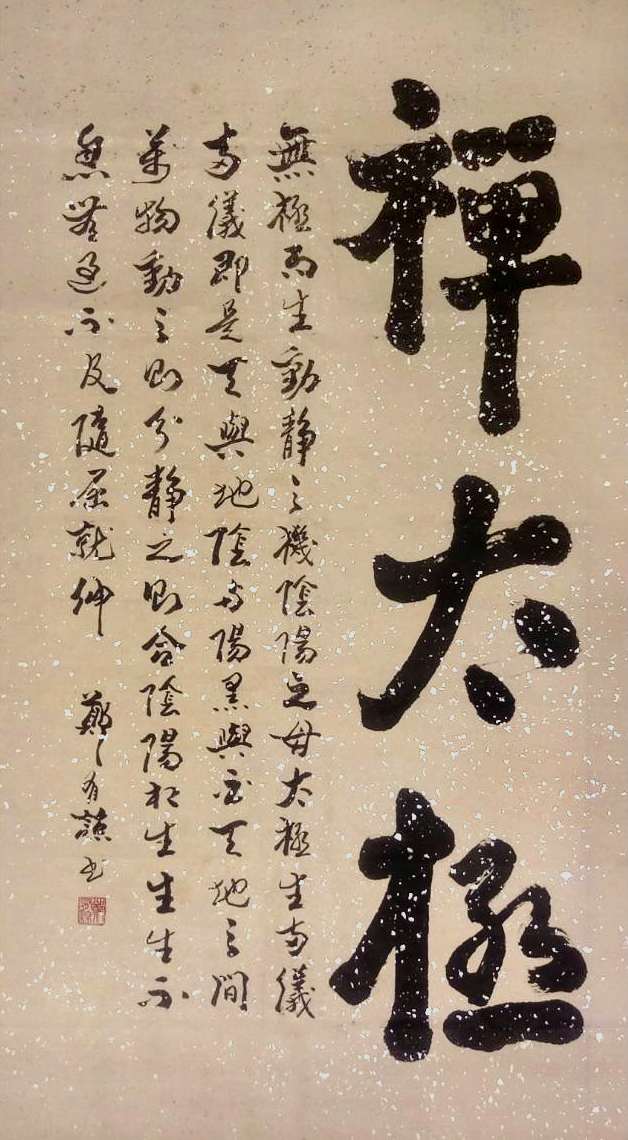 禪太極
無極而生動靜之機陰陽之母太極生兩儀
兩儀即是天與地陰與陽黑與白天地之間
萬物動之則分靜之則合陰陽相生生生不
息無過不及隨屈就伸
鄭有 書